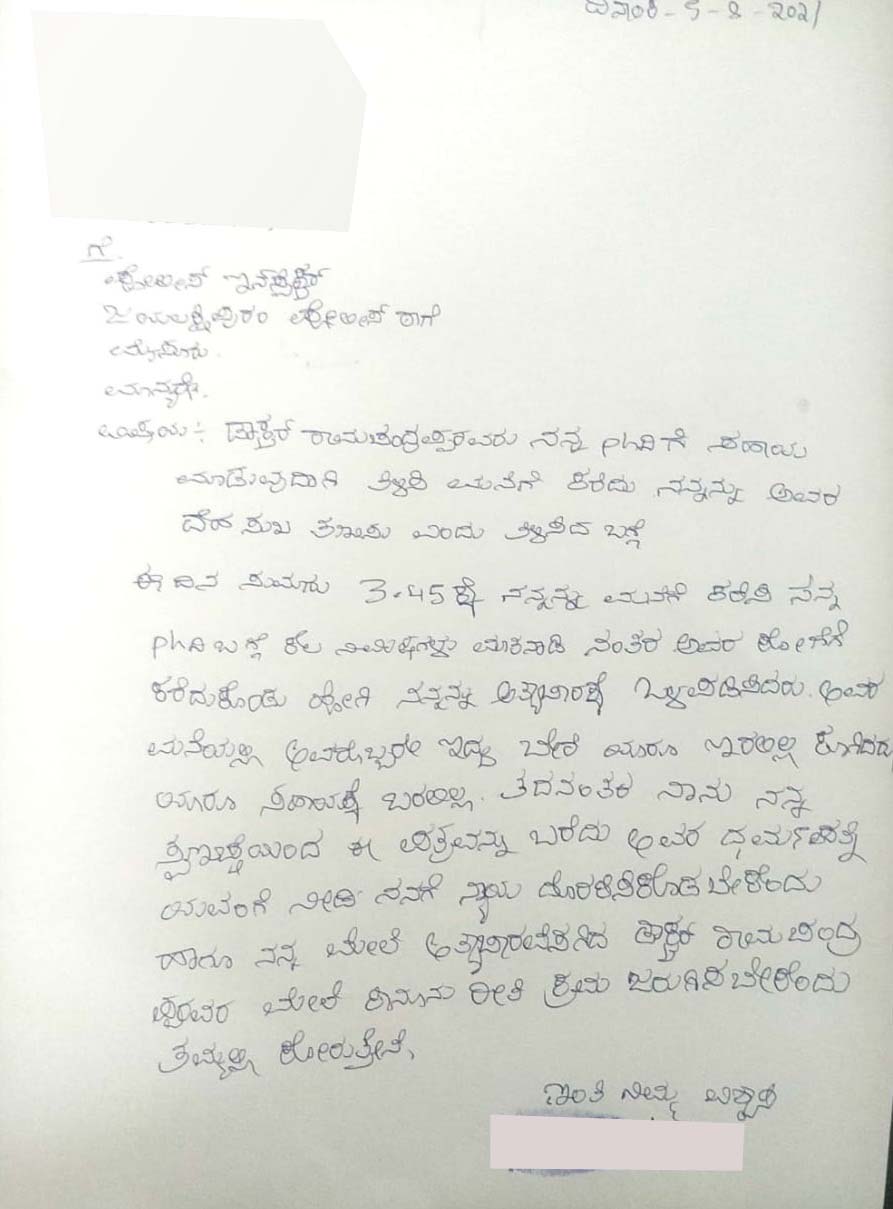 ದಿನಾಂಕ - 5 - 8 - 2021
ಗೆ.
ಪೋಲೀಸ್ ಇನ್ಸ್‌ಪೆಕ್ಟರ್
ಜಯಲಕ್ಷ್ಮಿಪುರಂ ಪೋಲೀಸ್ ಠಾಣೆ
ಮೈಸೂರು.
ಮಾನ್ಯರೇ.
ವಿಷಯ :- ಡಾಕ್ಟರ್ ರಾಮಚಂದ್ರಪ್ಪರವರು ನನ್ನ phd ಗೆ ಸಹಾಯ
ಮಾಡುವುದಾಗಿ ತಿಳಿಸಿ ಮನೆಗೆ ಕರೆದು ನನ್ನನ್ನು ಅವರ
ದೇಹ ಸುಖ ತಣಿಸು ಎಂದು ತಿಳಿಸಿದ ಬಗ್ಗೆ
ಈ ದಿನ ಸುಮಾರು 3.45 ಕ್ಕೆ ನನ್ನನ್ನು ಮನೆಗೆ ಕರೆಸಿ ನನ್ನ
phd ಬಗ್ಗೆ ಕೆಲ ನಿಮಿಷಗಳು ಮಾತನಾಡಿ ನಂತರ ಅವರ ಕೋಣೆಗೆ
ಕರೆದುಕೊಂಡು ಹೋಗಿ ನನ್ನನ್ನು ಅತ್ಯಾಚಾರಕ್ಕೆ ಒಳಪಡಿಸಿದರು. ಅವರ
ಮನೆಯಲ್ಲಿ ಅವರೊಬ್ಬರೇ ಇದ್ದು ಬೇರೆ ಯಾರೂ ಇರಲಿಲ್ಲ ಕೂಗಿದರು
ಯಾರೂ ಸಹಾಯಕ್ಕೆ ಬರಲಿಲ್ಲ. ತದನಂತರ ನಾನು ನನ್ನ
ಸ್ವಇಚ್ಛೆಯಿಂದ ಈ ಪತ್ರವನ್ನು ಬರೆದು ಅವರ ಧರ್ಮಪತ್ನಿ
ಯವರಿಗೆ ನೀಡಿ ನನಗೆ ನ್ಯಾಯ ದೊರಕಿಸಿಕೊಡಬೇಕೆಂದು
ಹಾಗೂ ನನ್ನ ಮೇಲೆ ಅತ್ಯಾಚಾರವೆಸಗಿದ ಡಾಕ್ಟರ್ ರಾಮಚಂದ್ರ
ಪ್ಪರವರ ಮೇಲೆ ಕಾನೂನು ರೀತಿ ಕ್ರಮ ಜರುಗಿಸಬೇಕೆಂದು
ತಮ್ಮಲ್ಲಿ ಕೋರುತ್ತೇನೆ.
ಇಂತಿ ನಿಮ್ಮ ವಿಶ್ವಾಸಿ